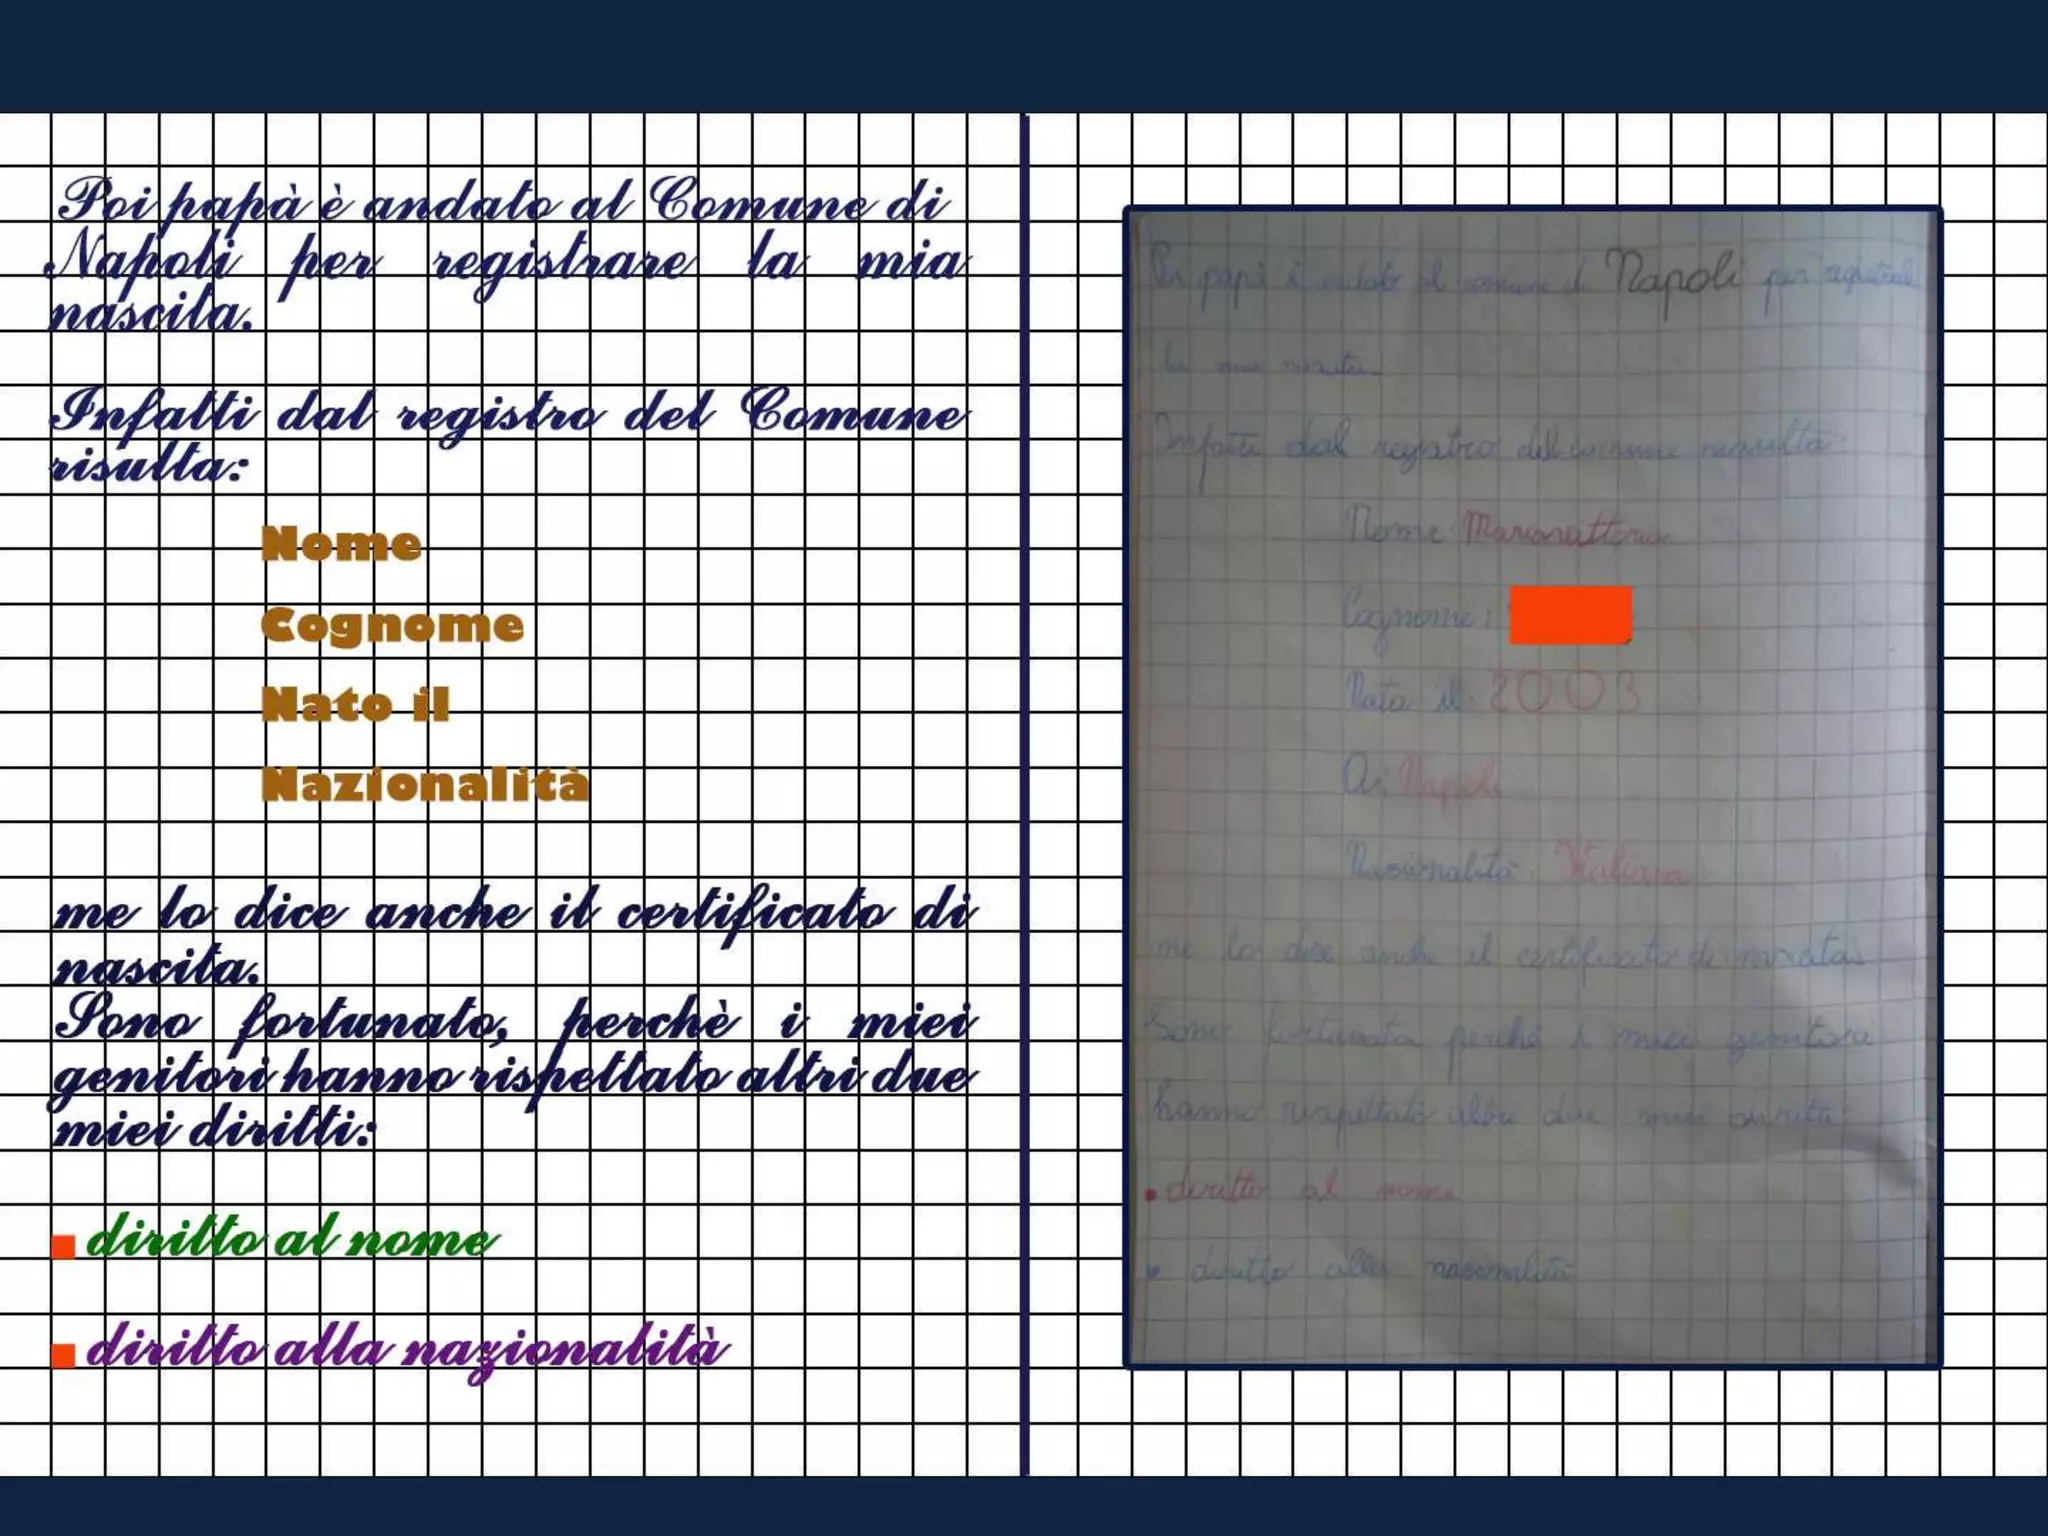 Poi papà è andato al Comune di
Napoli per registrare la mia
nascita.
Infatti dal registro del Comune
risulta:
Nome
Cognome
Nato il
Nazionalità
me lo dice anche il certificato di
nascita.
Sono fortunato, perchè i miei
genitori hanno rispettato altri due
miei diritti:
diritto al nome
diritto alla nazionalità
papà è andato al comune di Napoli per registrare
la mia nascita.
Infatti dal registro del comune risulta:
Nome: Mariavittoria
Cognome:
Nata il: 2003
A: Napoli
Nazionalità: Italiana
me lo dice anche il certificato di nascita
Sono fortunata perchè i miei genitori
hanno rispettato altri due miei diritti:
• diritto al nome
• diritto alla nazionalità